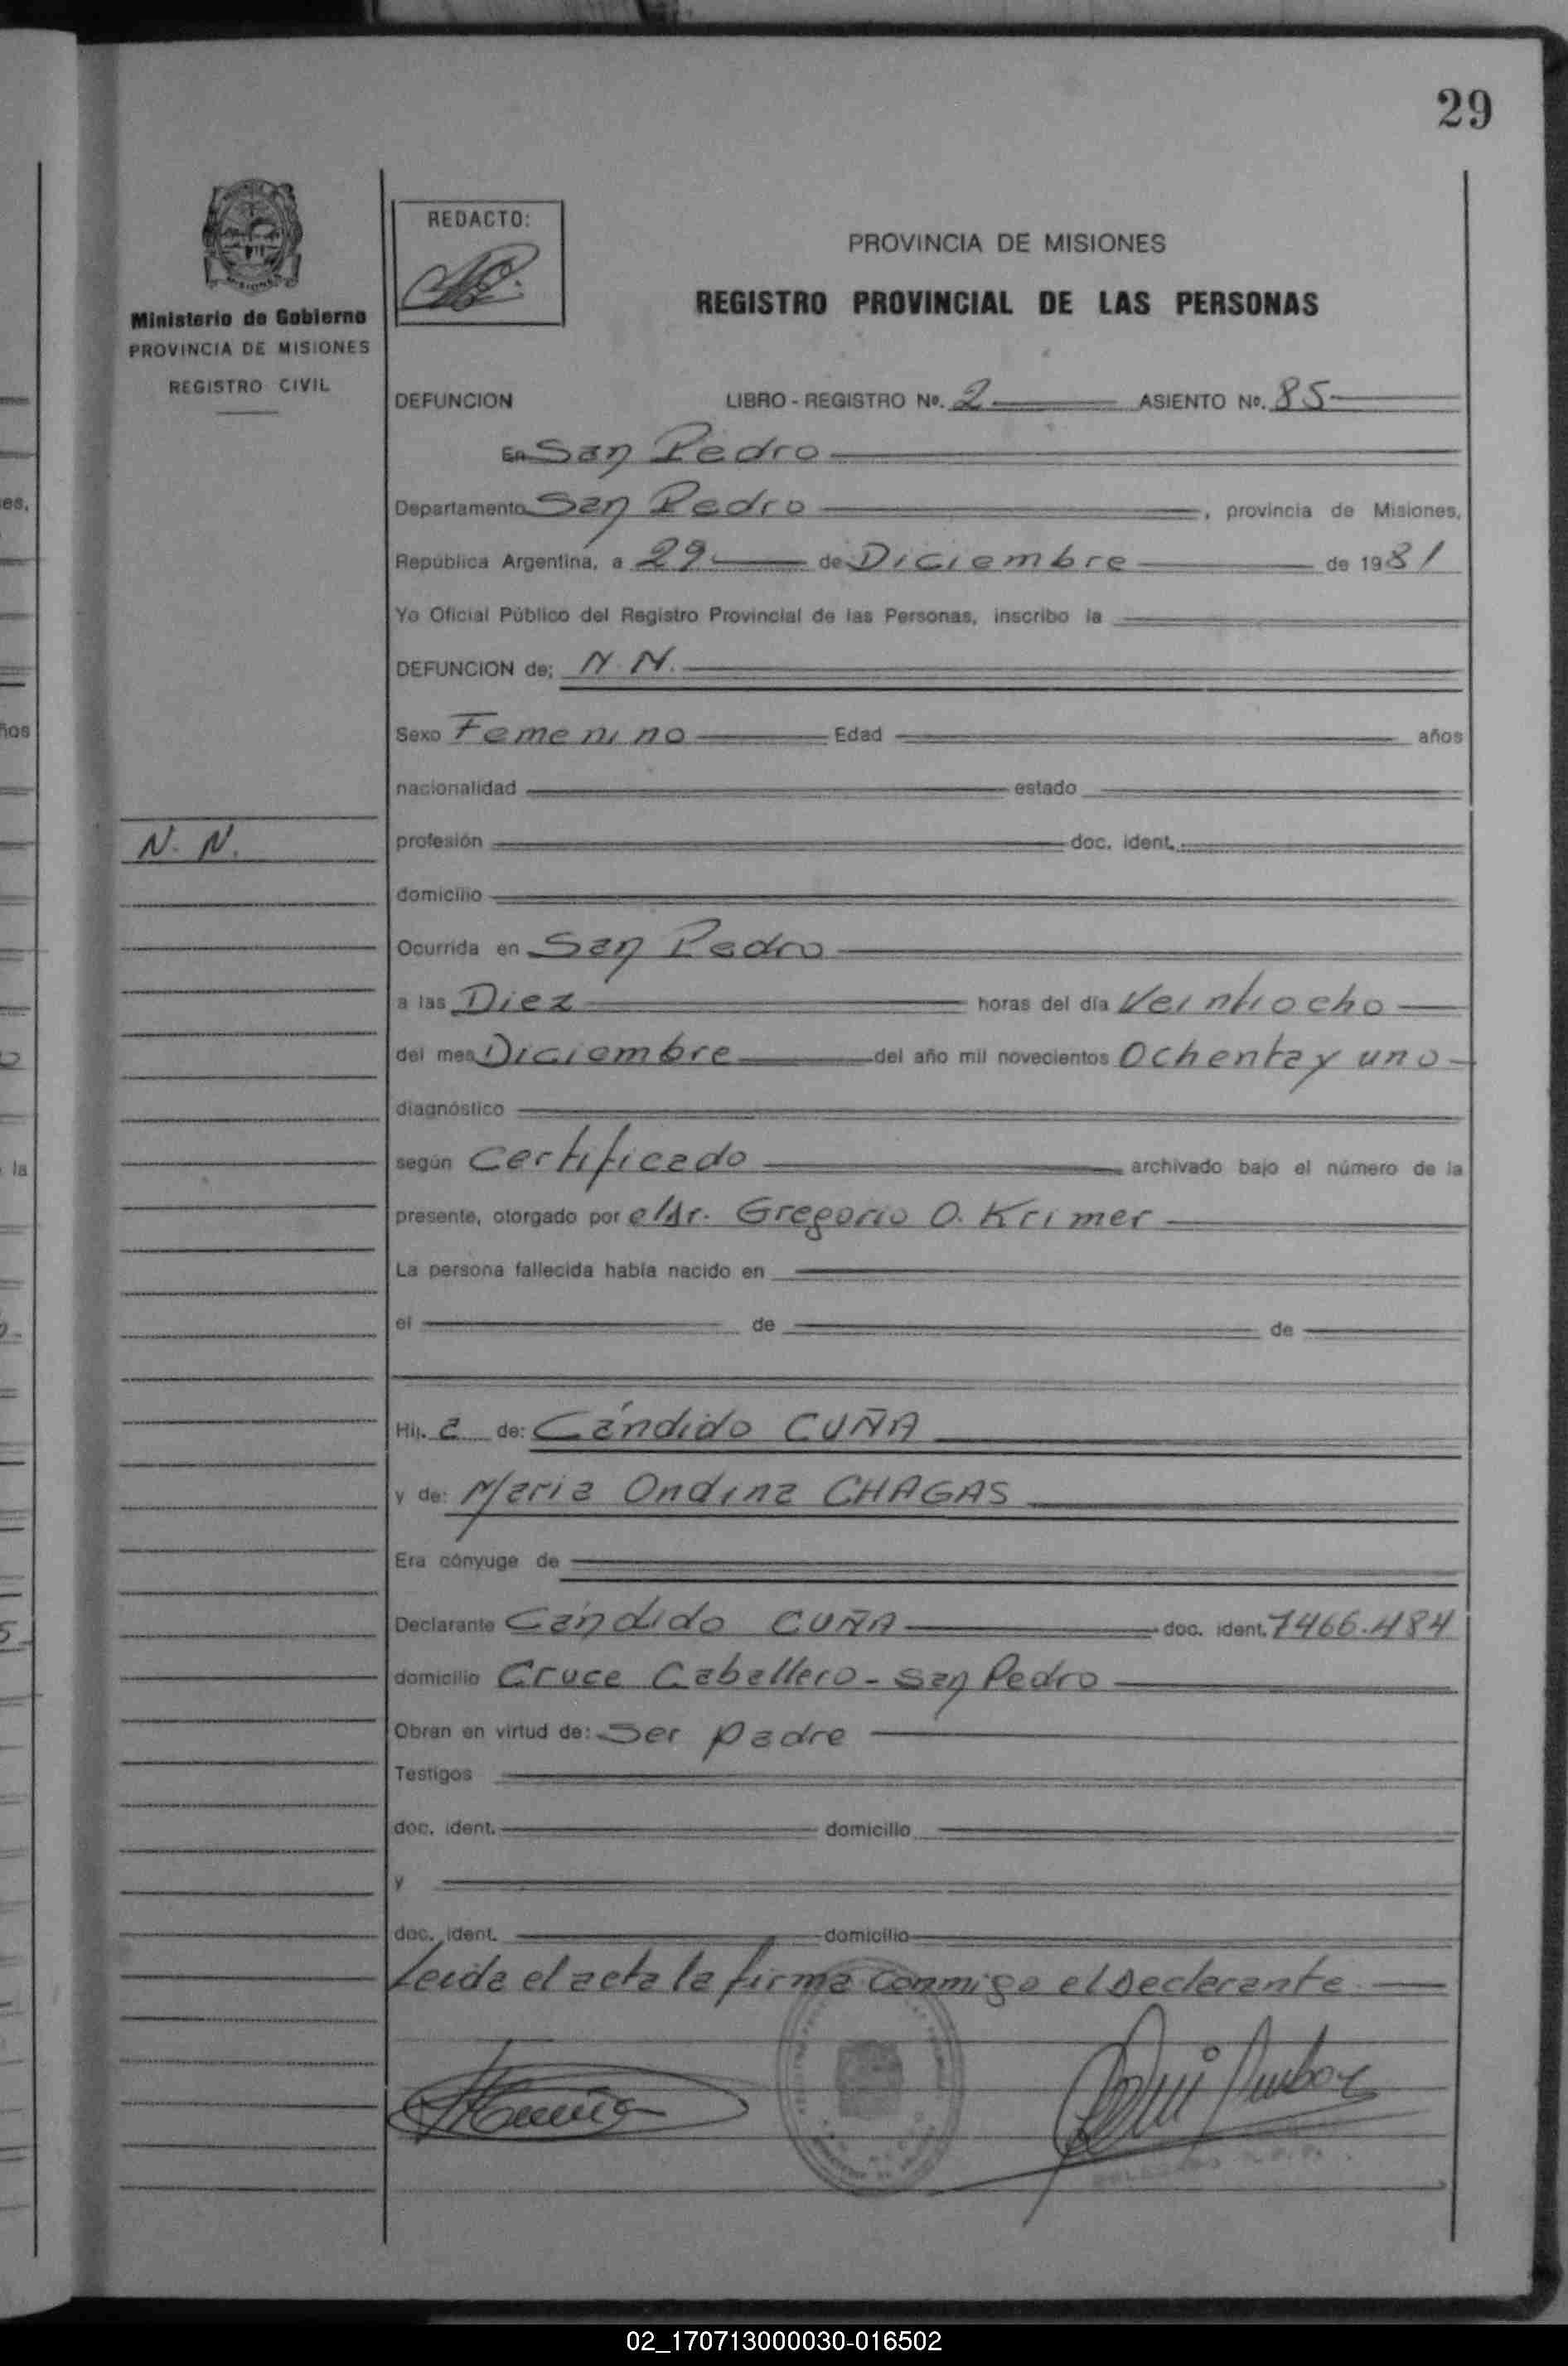 29
REDACTO:
PROVINCIA DE MISIONES
REGISTRO PROVINCIAL DE LAS PERSONAS
MISIONES
Ministerio de Gobierno
PROVINCIA DE MISIONES
REGISTRO CIVIL
DEFUNCION LIBRO - REGISTRO Nº. 2 ASIENTO Nº. 85
En San Pedro
Departamento San Pedro, provincia de Misiones,
República Argentina, a 29 de Diciembre de 1981
Yo Oficial Público del Registro Provincial de las Personas, inscribo la
DEFUNCION de; N.N.
Sexo Femenino Edad años
nacionalidad estado
N. N.
profesión doc. ident.
domicilio
Ocurrida en San Pedro
a las Diez horas del día Veintiocho
del mes Diciembre del año mil novecientos Ochenta y uno
diagnóstico
según Certificado archivado bajo el número de la
presente, otorgado por el Dr. Gregorio O. Krimer
La persona fallecida había nacido en
el de de
Hij. a de: Cándido CUÑA
y de: Maria Ondina CHAGAS
Era cónyuge de
Declarante Cándido CUÑA doc. ident. 7466.484
domicilio Cruce Caballero - San Pedro
Obran en virtud de: Ser padre
Testigos
doc. ident. domicilio
y
doc. ident. domicilio
Leida el acta la firma conmigo el Declarante
02_170713000030-016502